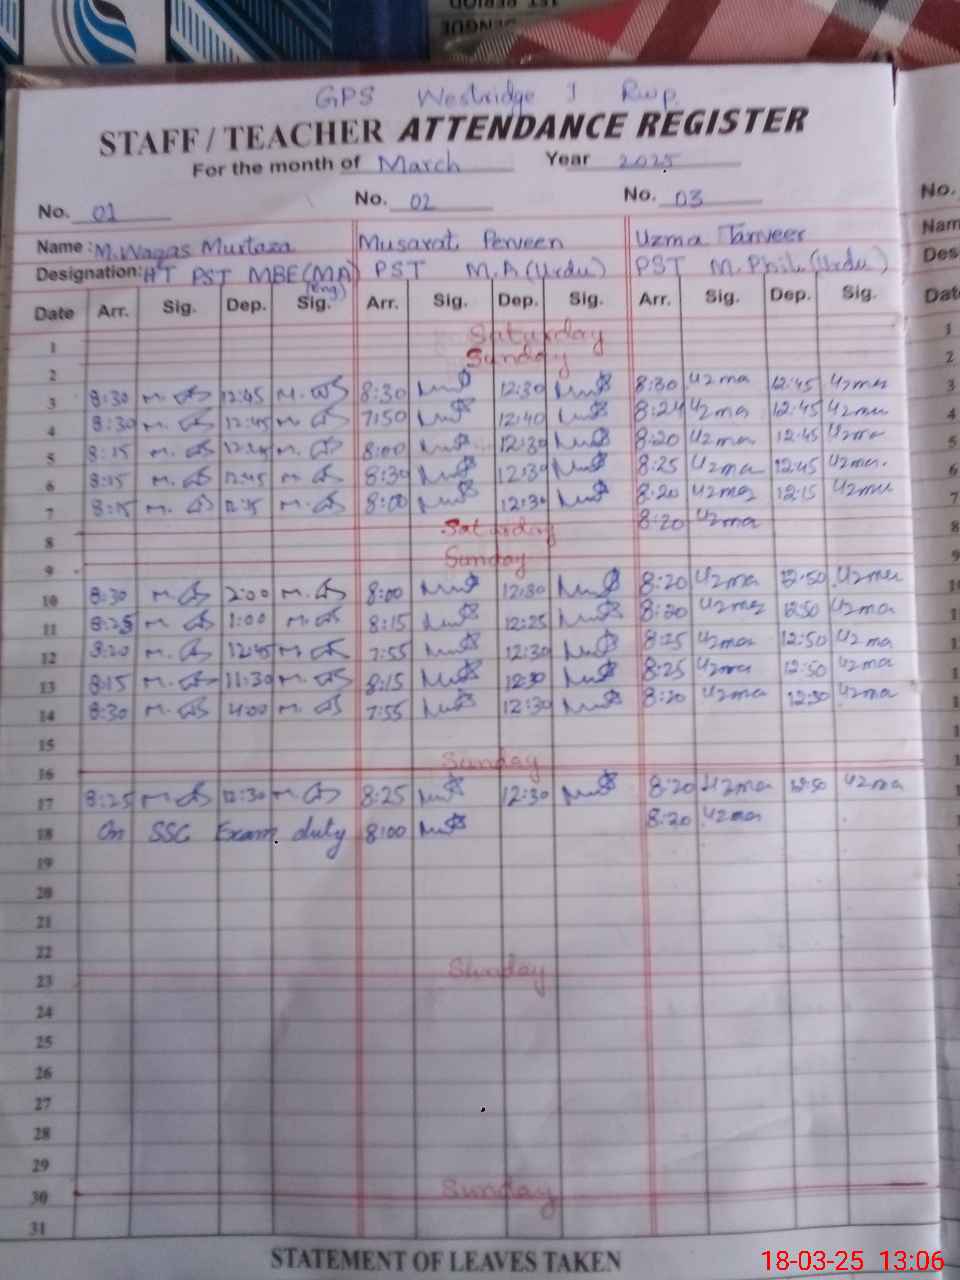 GPS Westridge I Rwp.
STAFF / TEACHER ATTENDANCE REGISTER
For the month of March Year 2025
No. 01 No. 02 No. 03 No.
Name : M. Waqas Murtaza Musarat Perveen Uzma Tanveer Nam
Designation: HT PST MBE(MA) PST M.A (Urdu) PST M.Phil. (Urdu) Des
(Eng)
Date Arr. Sig. Dep. Sig. Arr. Sig. Dep. Sig. Arr. Sig. Dep. Sig. Dat
1 Saturday 1
2 Sunday 2
3 8:30 12:45 8:30 12:30 8:30 Uzma 12:45 Uzma 3
4 8:30 12:45 7:50 12:40 8:24 Uzma 12:45 Uzma 4
5 8:15 8:00 12:30 8:20 Uzma 12:45 Uzma 5
6 8:15 12:45 8:30 12:30 8:25 Uzma 12:45 Uzma. 6
7 8:15 8:00 12:30 8:20 Uzma 12:15 Uzma 7
8 Saturday 8:20 Uzma 8
9 Sunday 9
10 8:30 2:00 8:00 12:30 8:20 Uzma 12:50 Uzma 10
11 8:25 1:00 8:15 12:25 8:20 Uzma 12:50 Uzma
12 8:20 12:45 7:55 12:30 8:25 Uzma 12:50 Uzma
13 8:15 11:30 8:15 12:30 8:25 Uzma 12:50 Uzma
14 8:30 4:00 7:55 12:30 8:20 Uzma 12:30 Uzma
15
16 Sunday
17 8:25 12:30 8:25 12:30 8:20 Uzma 12:50 Uzma
18 On SSC Exam duty 8:00 8:20 Uzma
19
20
21
22
23 Sunday
24
25
26
27
28
29
30 Sunday
31
STATEMENT OF LEAVES TAKEN
18-03-25 13:06